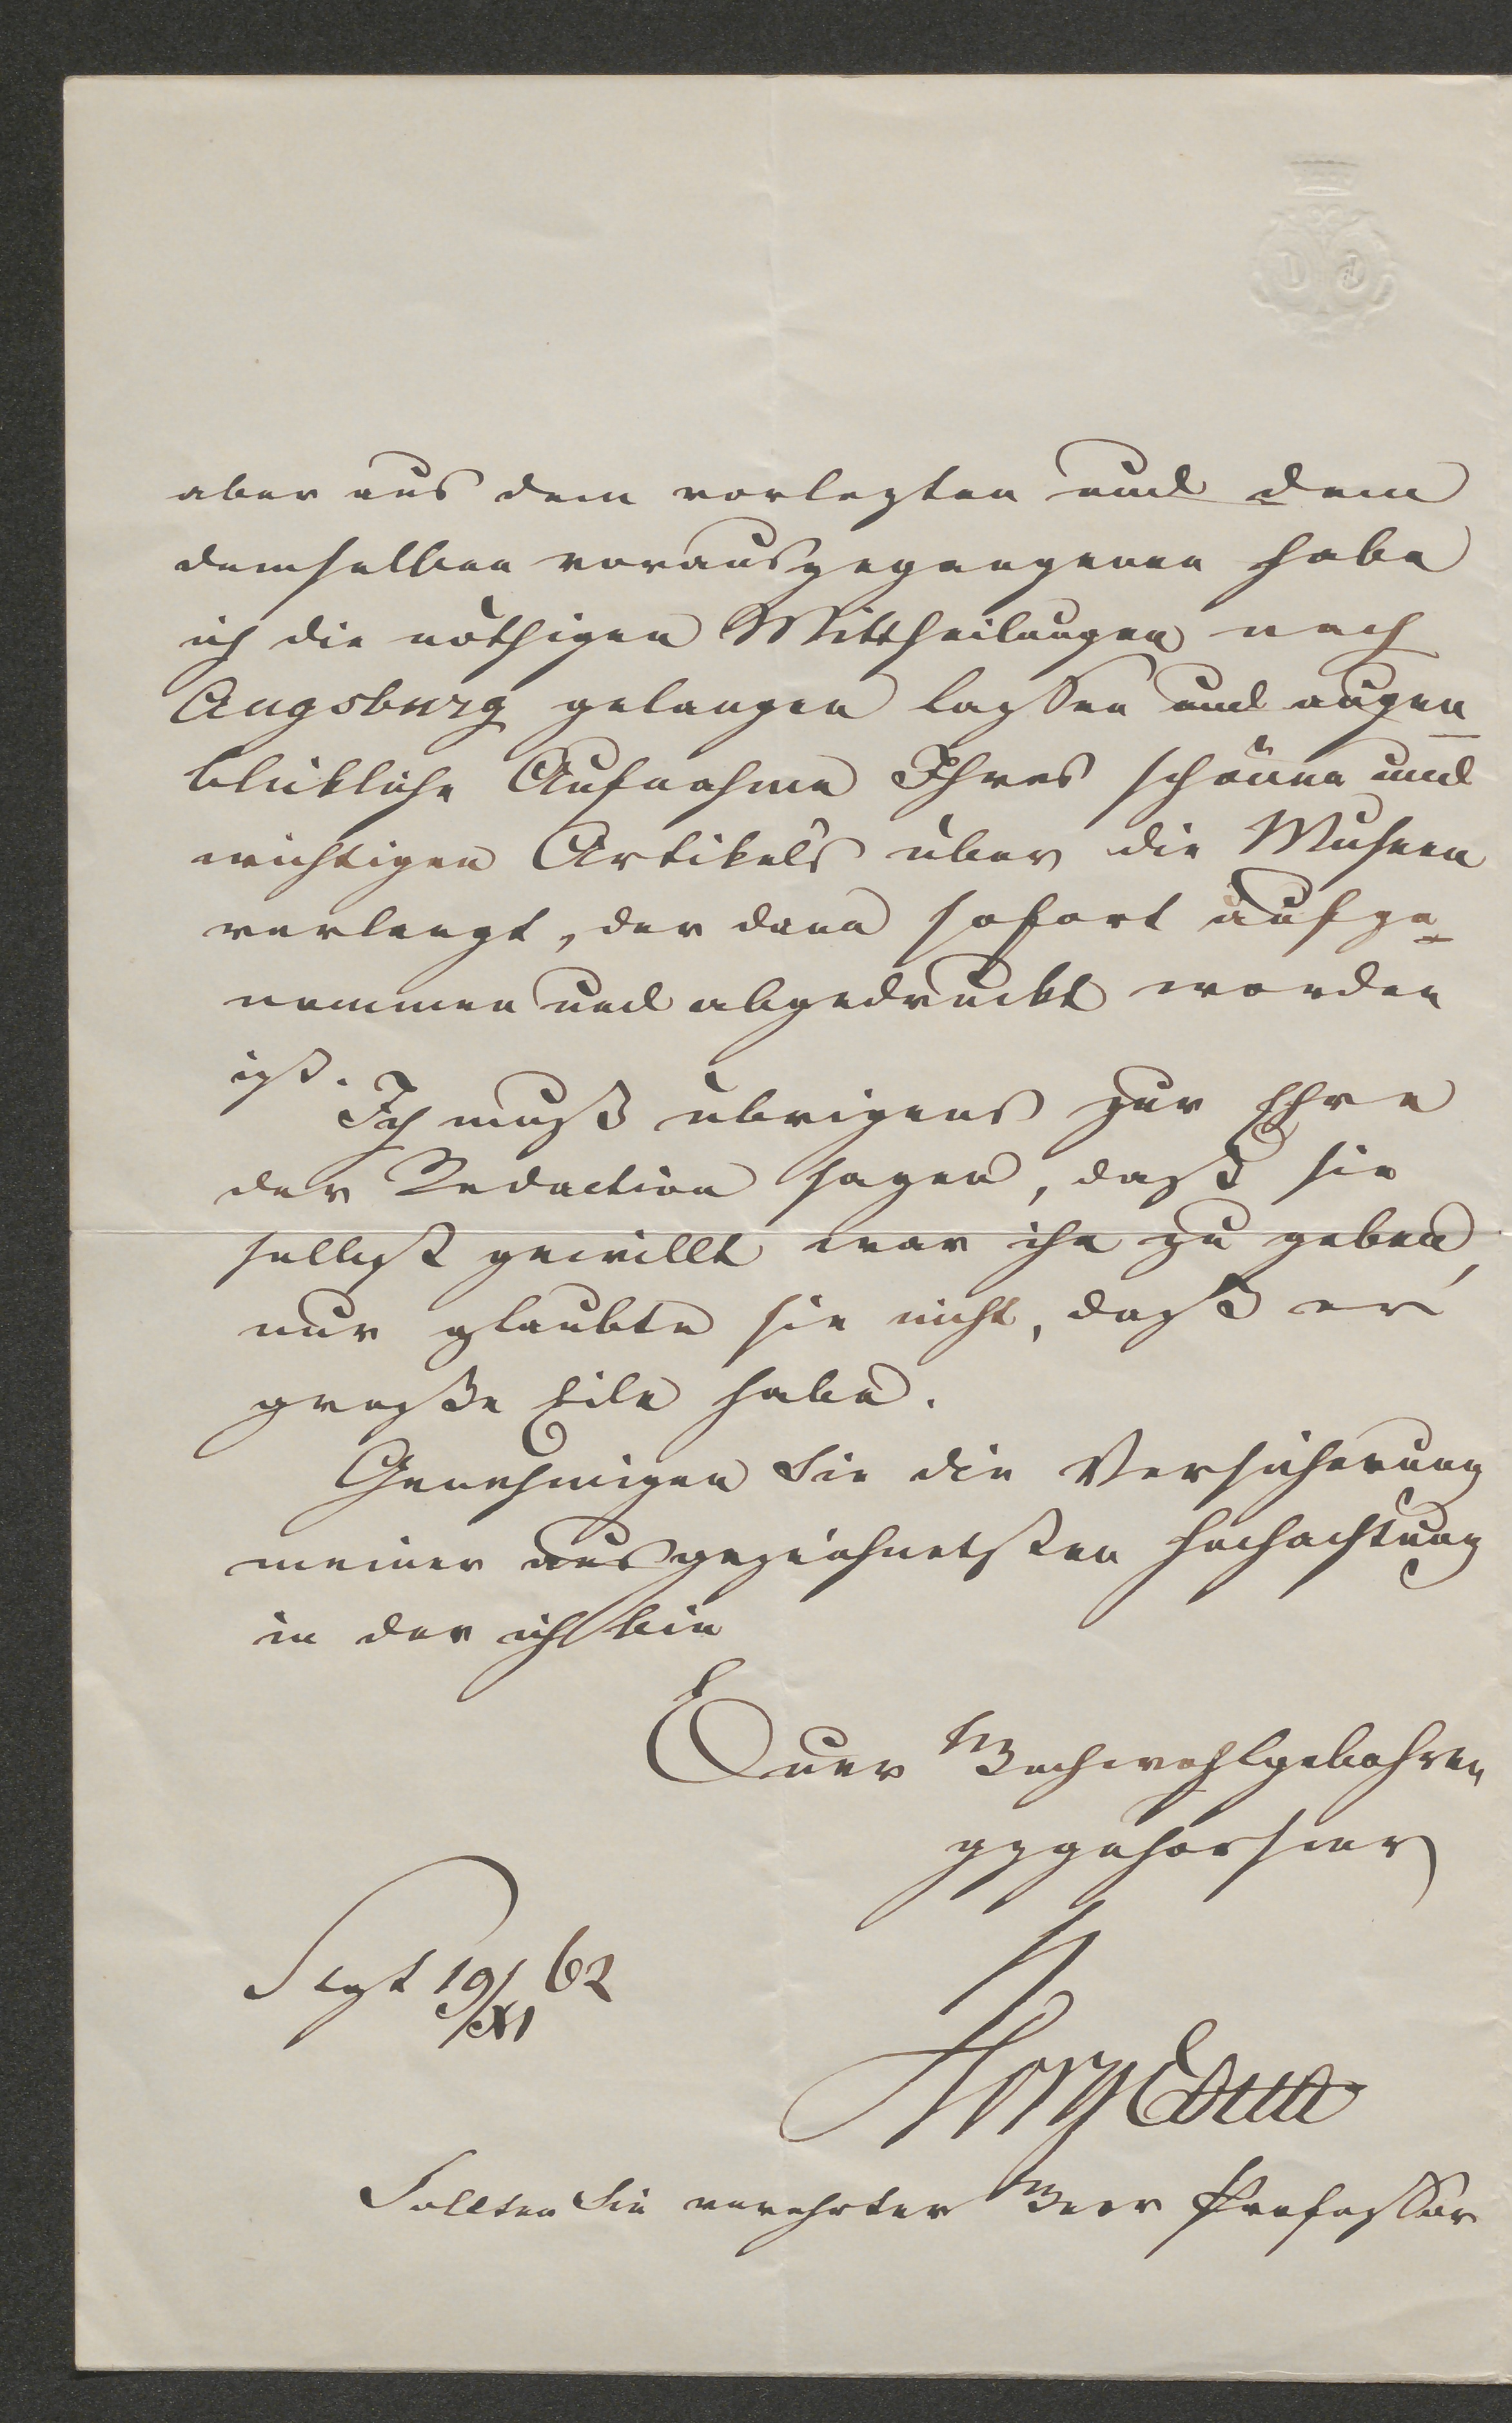 aber aus dem vorlezten und dem
demselben vorausgegangenen habe
ich die nöthigen Mittheilungen nach
Augsburg gelangen lassen und augen-
blikliche Aufnahme Ihres schönen und
wichtigen Artikels über die Museen
verlangt, der dann sofort aufge-
nommen und abgedruckt worden
ist.
Ich muß übrigens zur Ehre
der Redaction sagen, daß sie
selbst gewillt war ihn zu geben,
nur glaubte sie nicht, daß er
große Eile habe.
Genehmigen Sie die Versicherung
meiner ausgezeichnetsten Hochachtung
in der ich bin
Euer Hochwohlgebohren
gzgehorsmer
19/XI 62
Sollten Sie verehrter Herr Professor